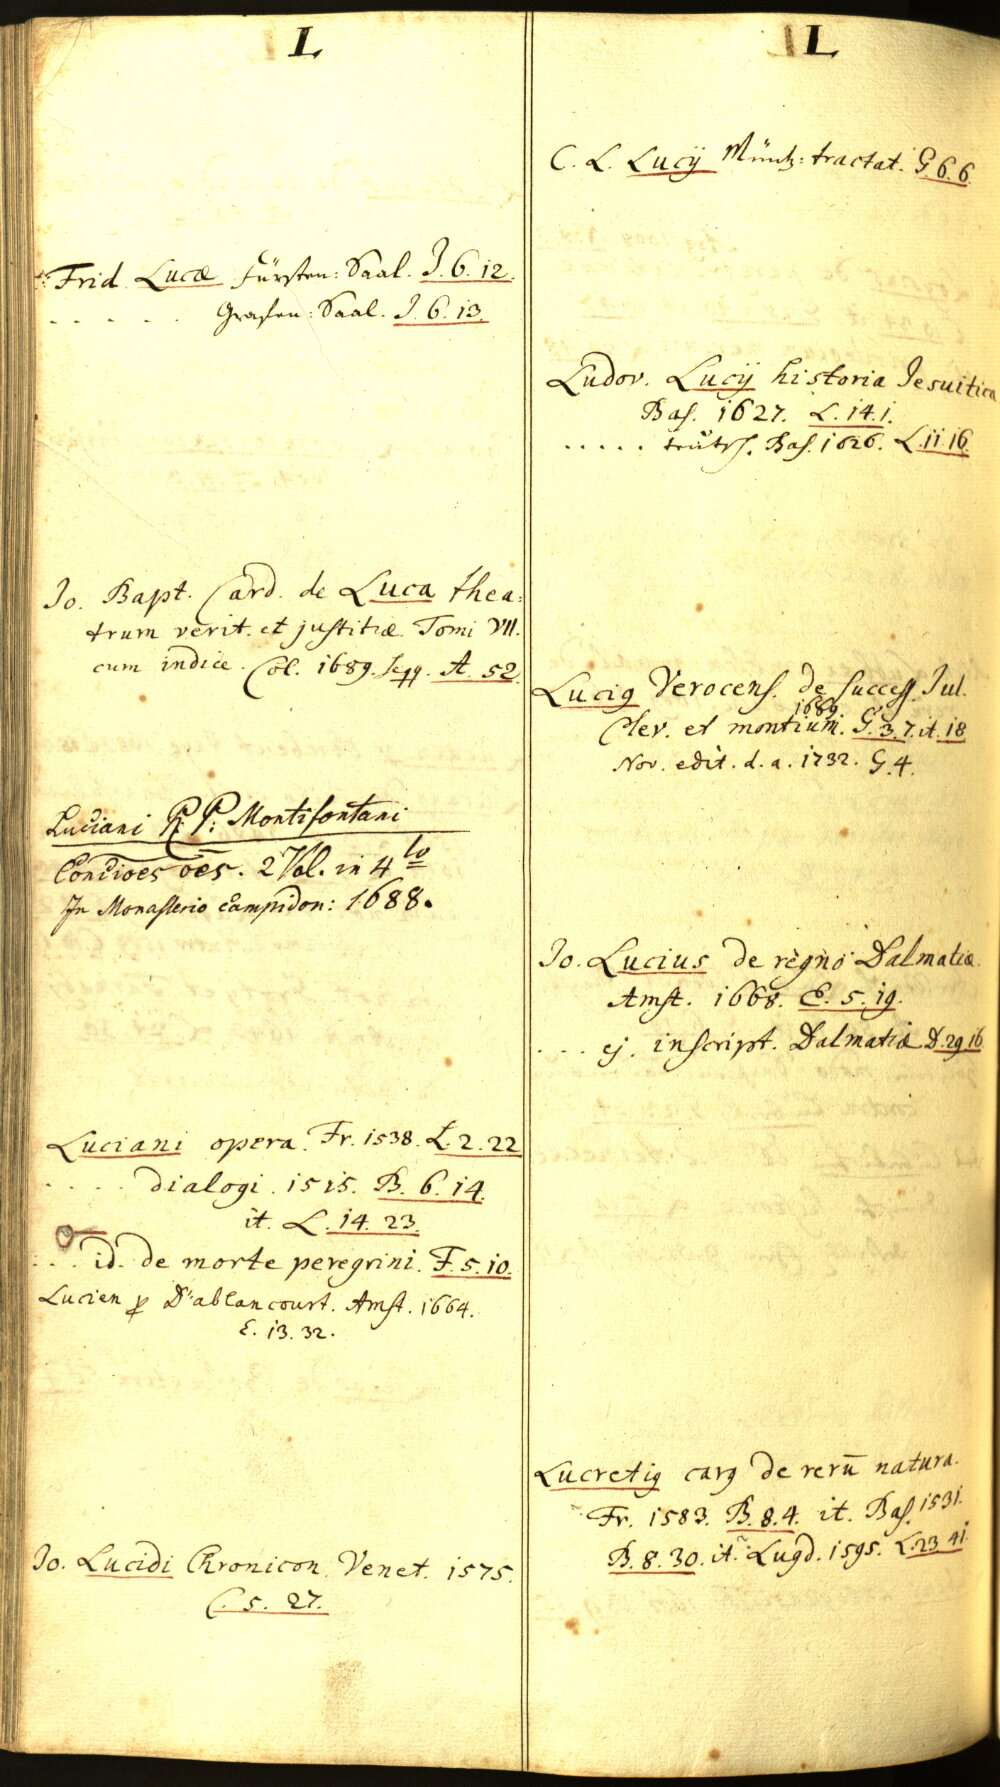 L
Frid. Lucæ Fürsten: Saal. J. 6. 12.
. . . . . Grafen: Saal. J. 6. 13.
Jo. Bapt. Card. de Luca thea:
trum verit. et justitiæ. Tomi VII.
cum indice. Col. 1689. seqq. A. 52.
Luciani R. P: Montifontani
Concioes oēs. 2 Vol. in 4to
In Monasterio Campidon: 1688.
Luciani opera. Fr. 1538. L. 2. 22
. . . . dialogi. 1515. B. 6. 14.
it. L. 14. 23.
. . . id. de morte peregrini. F. 5. 10.
Lucien p D'ablancourt. Amst. 1664.
E. 13. 32.
Jo. Lucidi Chronicon. Venet. 1575.
C. 5. 27.
L
C. L. Lucij Müntz: tractat. G. 6. 6.
Ludov. Lucij historia Jesuitica
Bas. 1627. L. 14. 1.
. . . . . teutsch. Bas. 1626. L. 11. 16.
Lucig Verocens. de success. Jul.
1689.
Clev. et montium. G. 3. 7. it. 18
Nov. edit. d. a. 1732. G. 4.
Jo. Lucius de regno Dalmatiæ.
Amst. 1668. E. 5. 19.
. . . ej. inscript. Dalmatiæ D. 29 16
Lucretig carg de rerū natura.
Fr. 1583. B. 8. 4. it. Bas. 1531.
B. 8. 30. it. Lugd. 1595. L. 23 41.